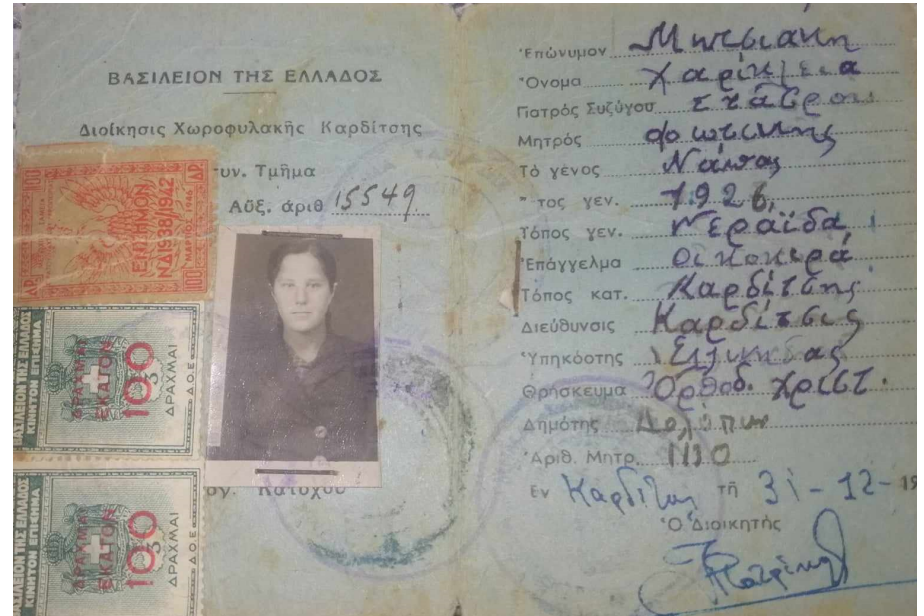 ΒΑΣΙΛΕΙΟΝ ΤΗΣ ΕΛΛΑΔΟΣ
Διοίκησις Χωροφυλακῆς Καρδίτσης
Τμῆμα
Αὔξ. ἀριθ 15549
ΔΡ 100 100 ΔΡ
ΕΝΣΗΜΟΝ
ΝΔ 1938/1942
ΜΑΡΤΙΟΣ 1946
ΒΑΣΙΛΕΙΟΝ ΤΗΣ ΕΛΛΑΔΟΣ
ΚΙΝΗΤΟΝ ΕΠΙΣΗΜΑ
ΔΡΑΧΜΑΙ
ΕΚΑΤΟΝ
100
ΔΡΑΧΜΑΙ
Δ.Ο.Ε.
ΒΑΣΙΛΕΙΟΝ ΤΗΣ ΕΛΛΑΔΟΣ
ΚΙΝΗΤΟΝ ΕΠΙΣΗΜΑ
ΔΡΑΧΜΑΙ
ΕΚΑΤΟΝ
100
ΔΡΑΧΜΑΙ
Δ.Ο.Ε.
Κατόχου
Ἐπώνυμον
Ὄνομα Χαρίκλεια
Πατρός Συζύγου
Μητρός Φωτεινῆς
Τό γένος Νάπας
τος γεν. 1926
Τόπος γεν. Νεράϊδα
Ἐπάγγελμα οἰκοκερά
Τόπος κατ. Καρδίτσης
Διεύθυνσις Καρδίτσις
Ὑπηκόοτης
Θρήσκευμα Ὀρθοδ. Χριστ.
Δημότης Δολόπων
Ἀριθ. Μητρ.
Εν Καρδίτσῃ τῇ 31-12-19
Ὁ Διοικητής